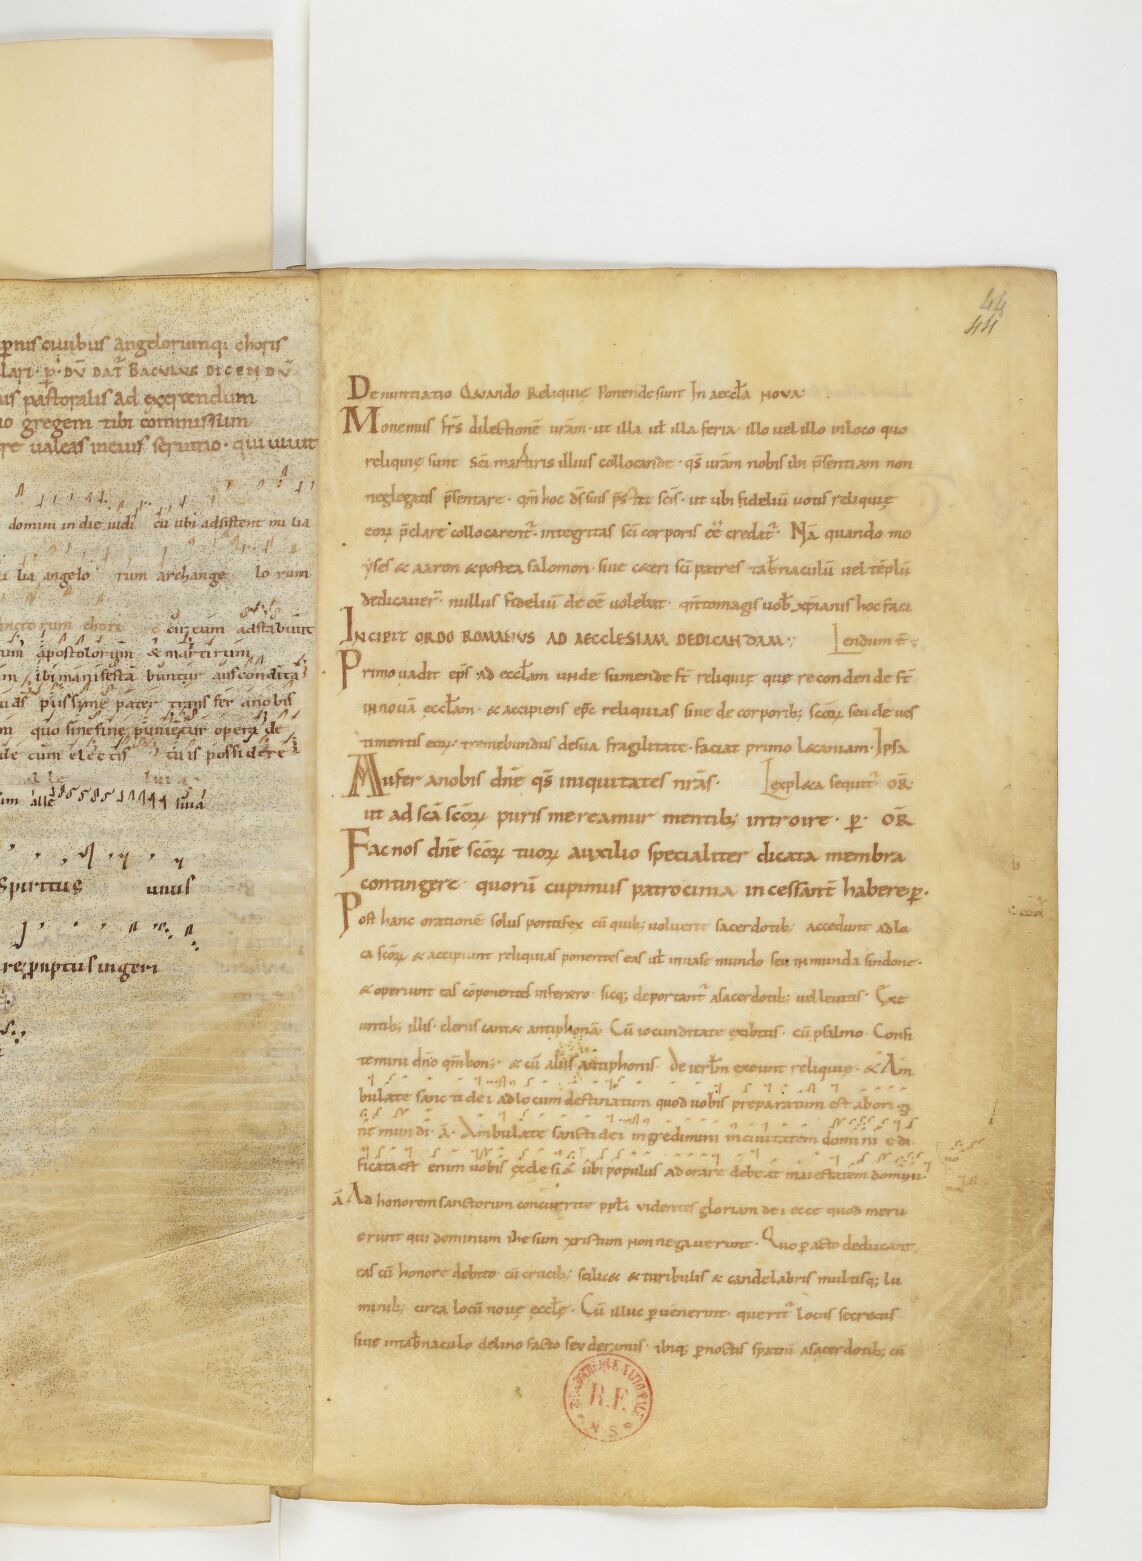 pnis ciuibus angelorumqi choris
lari · p̱ · DV̄ DAT̄ BACVLVS DICENDV̄
is pastoralis ad exercendum
o gregem tibi commissum
re ualeas in eius seruitio · qui uiuit
domini in die iudi cū ubi adsistent mi lia
lia angelo rum archange lo rum
nctorum chori circum adstabunt
um apostolorum & martirum
ibi manifesta buntur absconditā
piissime pater trans fer a nobis
quo sine fine puniuntur opera de
de cum electis tuis possidere
Spiritus unus
44
44
Denuntiatio Quando Reliquię Ponende sunt In aeccła NOVA
Monemus frs̄ dilectionē urām · ut illa ul̄ illa feria · illo uel illo in loco quo
reliquię sunt Sci martiris illius collocande · qs̄ urām nobis ibi p̄sentiam non
neglegatis p̄sentare · qm̄ hoc ds̄ suis p̄stat scīs · ut ubi fideliū uotis reliquię
eoꝝ p̄clare collocarent᷑ · integritas sci corporis eē credat᷑ · Nā quando mo
yses & aaron & postea salomon · siue c&eri sci patres tab̄naculū uel tēplū
dedicauer᷑ · nullus fideliū de eē uolebat · q̄ntomagis uob̄ xp̄ianis hoc faci
INCIPIT ORDO ROMANVS AD AECCLESIAM DEDICANDAM · lendum ē ·
Primo uadit ep̄s ad eccłam unde sumende st̄ reliquię que recondende st̄
in nouā eccłam · & accipiens ep̄c reliquias siue de corporib; scoꝝ seu de ues
timentis eoꝝ · tremebundus de sua fragilitate · faciat primo l&aniam · Ipsa
Aufer a nobis dnē qs̄ iniquitates nrās · expl&a sequit᷑ · OR̄
ut ad scā scoꝝ puris mereamur mentib; introire · p̱ · OR̄
Fac nos dnē scoꝝ tuoꝝ auxilio specialiter dicata membra
contingere · quorū cupimus patrocinia incessant̄ habere · p̱ ·
Post hanc orationē solus pontifex cū quib; uoluerit sacerdotib; accedunt ad lo
ca scoꝝ & accipiunt reliquias ponentes eas ul̄ in uase mundo seu in munda sindone ·
& operiunt eas cōponentes in fer&ro · sicq; deportant᷑ a sacerdotib; uel leuitis · Exe
untib; illis · clerus cant& antiphonā · Cū iocunditate exibitis · cū psalmo · Confi
temini dn̄o qm̄ bon; · & cū aliis antiphonis · De ierł̄m exeunt reliquię · & Am
bulate sanc ti de i ad lo cum destinatum quod uobis preparatum est ab ori gi
ne mun di · ā · Ambulate sancti de i in gredimini in ciuitatem domi ni e di
ficata est enim uobis ecclesia ubi populus adorare debeat maiestatem domini
ā Ad honorem sanctorum concurrite ppl̄i videntes gloriam de i ecce quod meru
erunt qui dominum ihesum xristum non negauerunt · Quo pacto deducant᷑
eas cū honore debito cū crucib; scilic& & turibulis & candelabris multisq; lu
minib; circa locū nouę eccłę · Cū illuc p̱uenerint · querit᷑ locus secretus
siue in tab̄naculo de lino facto seu de ramis · ibiq; p̱noctis spatiū a sacerdotib; cū
B.F.